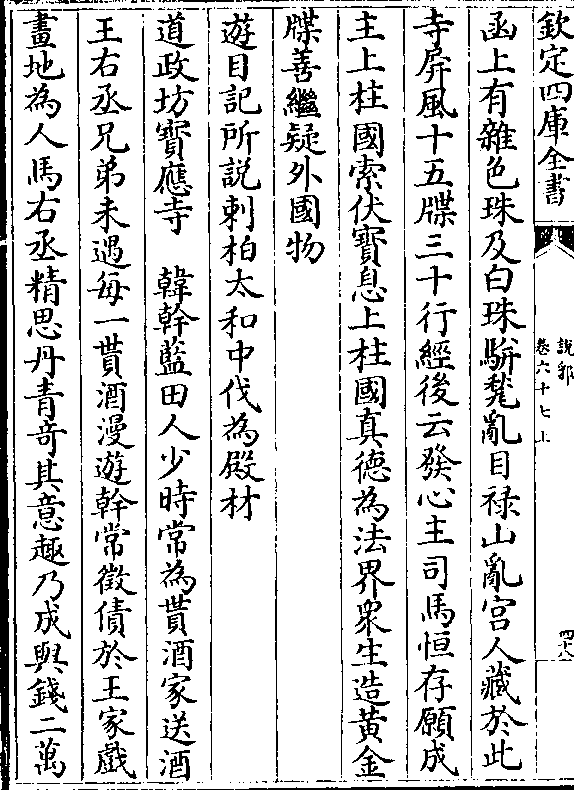 欽定四庫全書
說郛
卷六十七上
四十八
函上有雜色珠及白珠駢甃亂目祿山亂宫人藏於此
寺屏風十五牒三十行經後云發心主司馬恒存願成
主上柱國索伏寶息上柱國真德為法界衆生造黄金
牒善繼疑外國物
遊目記所説刺柏太和中伐為殿材
道政坊寳應寺　韓幹藍田人少時常為貰酒家送酒
王右丞兄弟未遇每一貰酒漫遊幹常徵債於王家戲
畫地為人馬右丞精思丹青竒其意趣乃成與錢二萬